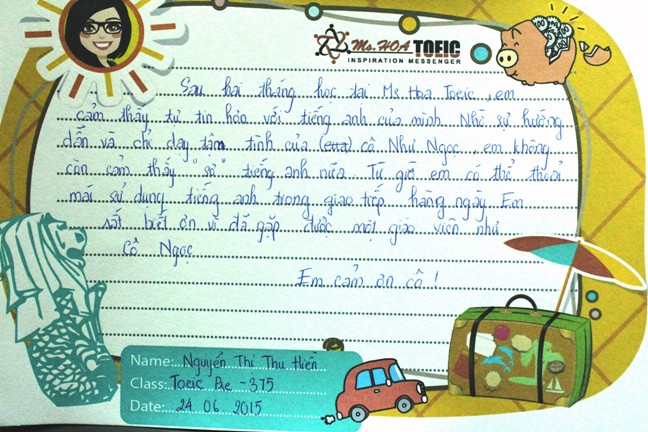 Ms. HOA TOEIC
INSPIRATION MESSENGER
Sau hai tháng học tại Ms. Hoa Toeic, em
cảm thấy tự tin hơn với tiếng anh của mình. Nhờ sự hướng
dẫn và chỉ dạy tận tình của cô Như Ngọc, em không
còn cảm thấy "sợ" tiếng anh nữa. Từ giờ em có thể thoải
mái sử dụng tiếng anh trong giao tiếp hàng ngày. Em
rất biết ơn vì đã gặp được một giáo viên như
cô Ngọc
Em cảm ơn cô!
Name: Nguyễn Thị Thu Hiền
Class: Toeic Pre - 375
Date: 24.06.2015